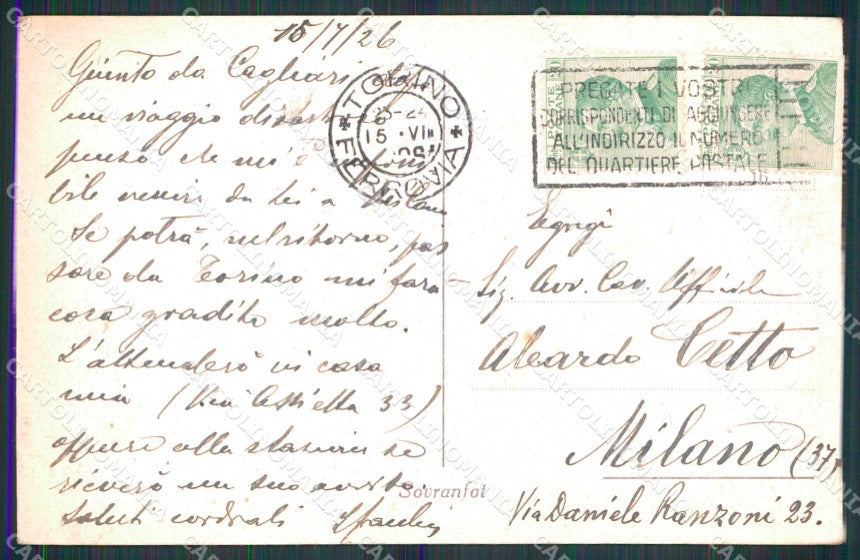 15/7/26
Giunto da Cagliari
un viaggio
penso che mi è
bile venire da Lei a Milano
Se potrà, nel ritorno, pas
sare da Torino mi fara
cosa gradita molto.
L'attenderò in casa
mia (Via Assietta 33)
oppure alla stazione se
riceverò un suo
Saluti cordiali
TORINO
FERROVIA
15 VII
PREGATE I VOSTRI
CORRISPONDENTI DI AGGIUNGERE
ALL'INDIRIZZO IL NUMERO
DEL QUARTIERE POSTALE
Egregi
Sig. Avv. Cav. Ufficiale
Aleardo Cetto
Milano (37)
Via Daniele Ranzoni 23.
Sovranfot
CARTOLINOMANIA